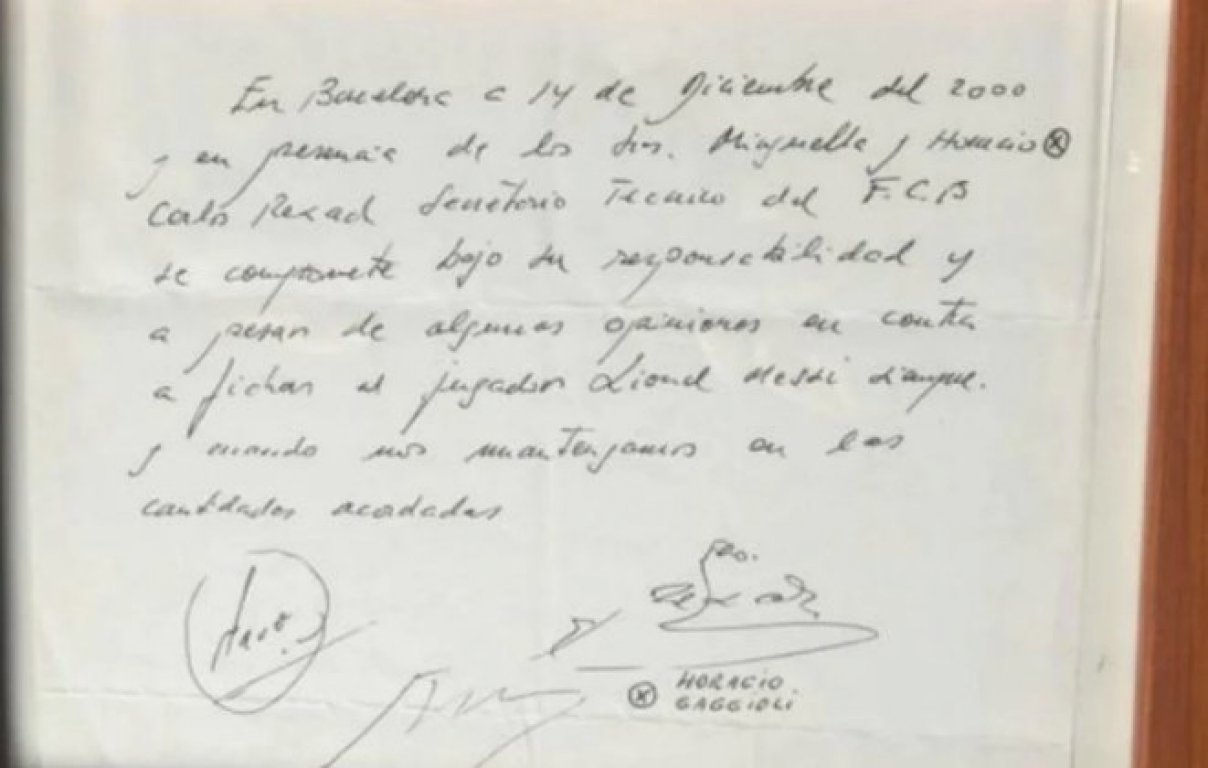 En Barcelona a 14 de Diciembre del 2000
y en presencia de los Srs. Minguella y Horacio ⓧ
Carlos Rexach Secretario Tecnico del F.C.B
se compromete bajo su responsabilidad y
a pesar de algunas opiniones en contra
a fichar al jugador Lionel Messi siempre
y cuando nos mantengamos en las
cantidades acordadas
Fdo.
ⓧ HORACIO
GAGGIOLI